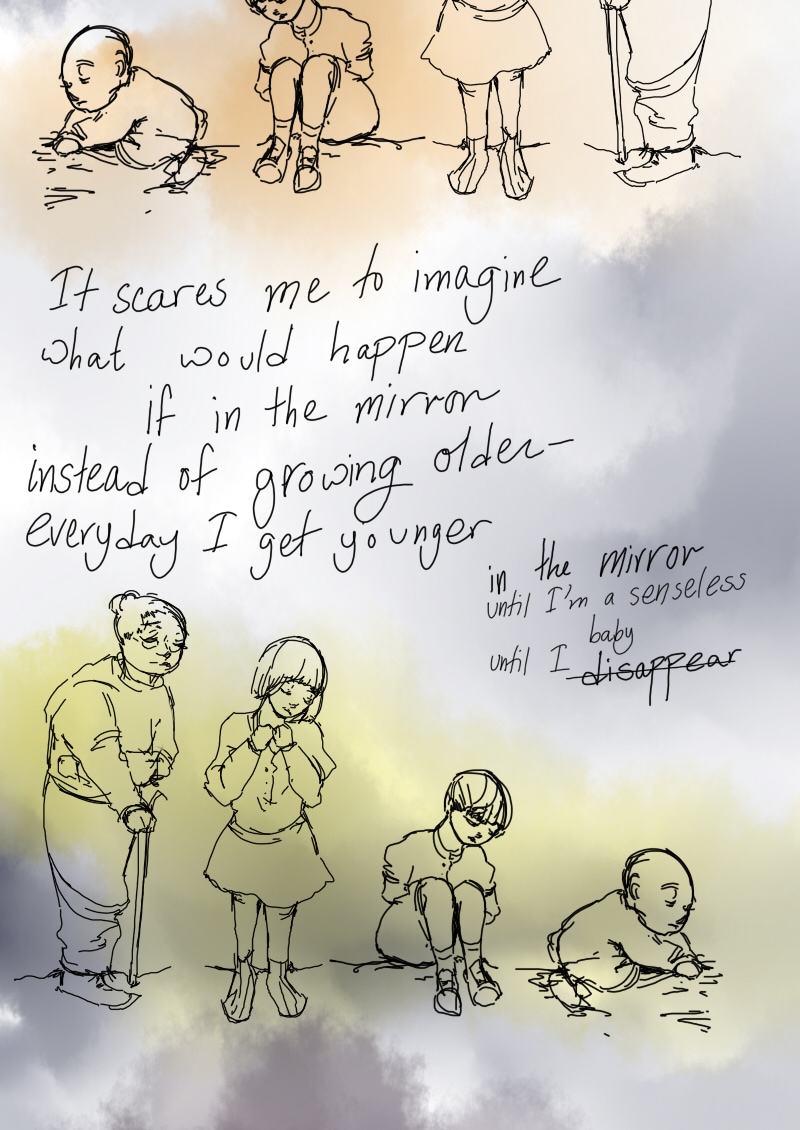 It scares me to imagine
what would happen
if in the mirror
instead of growing older-
everyday I get younger
in the mirror
until I'm a senseless
baby
until I disappear